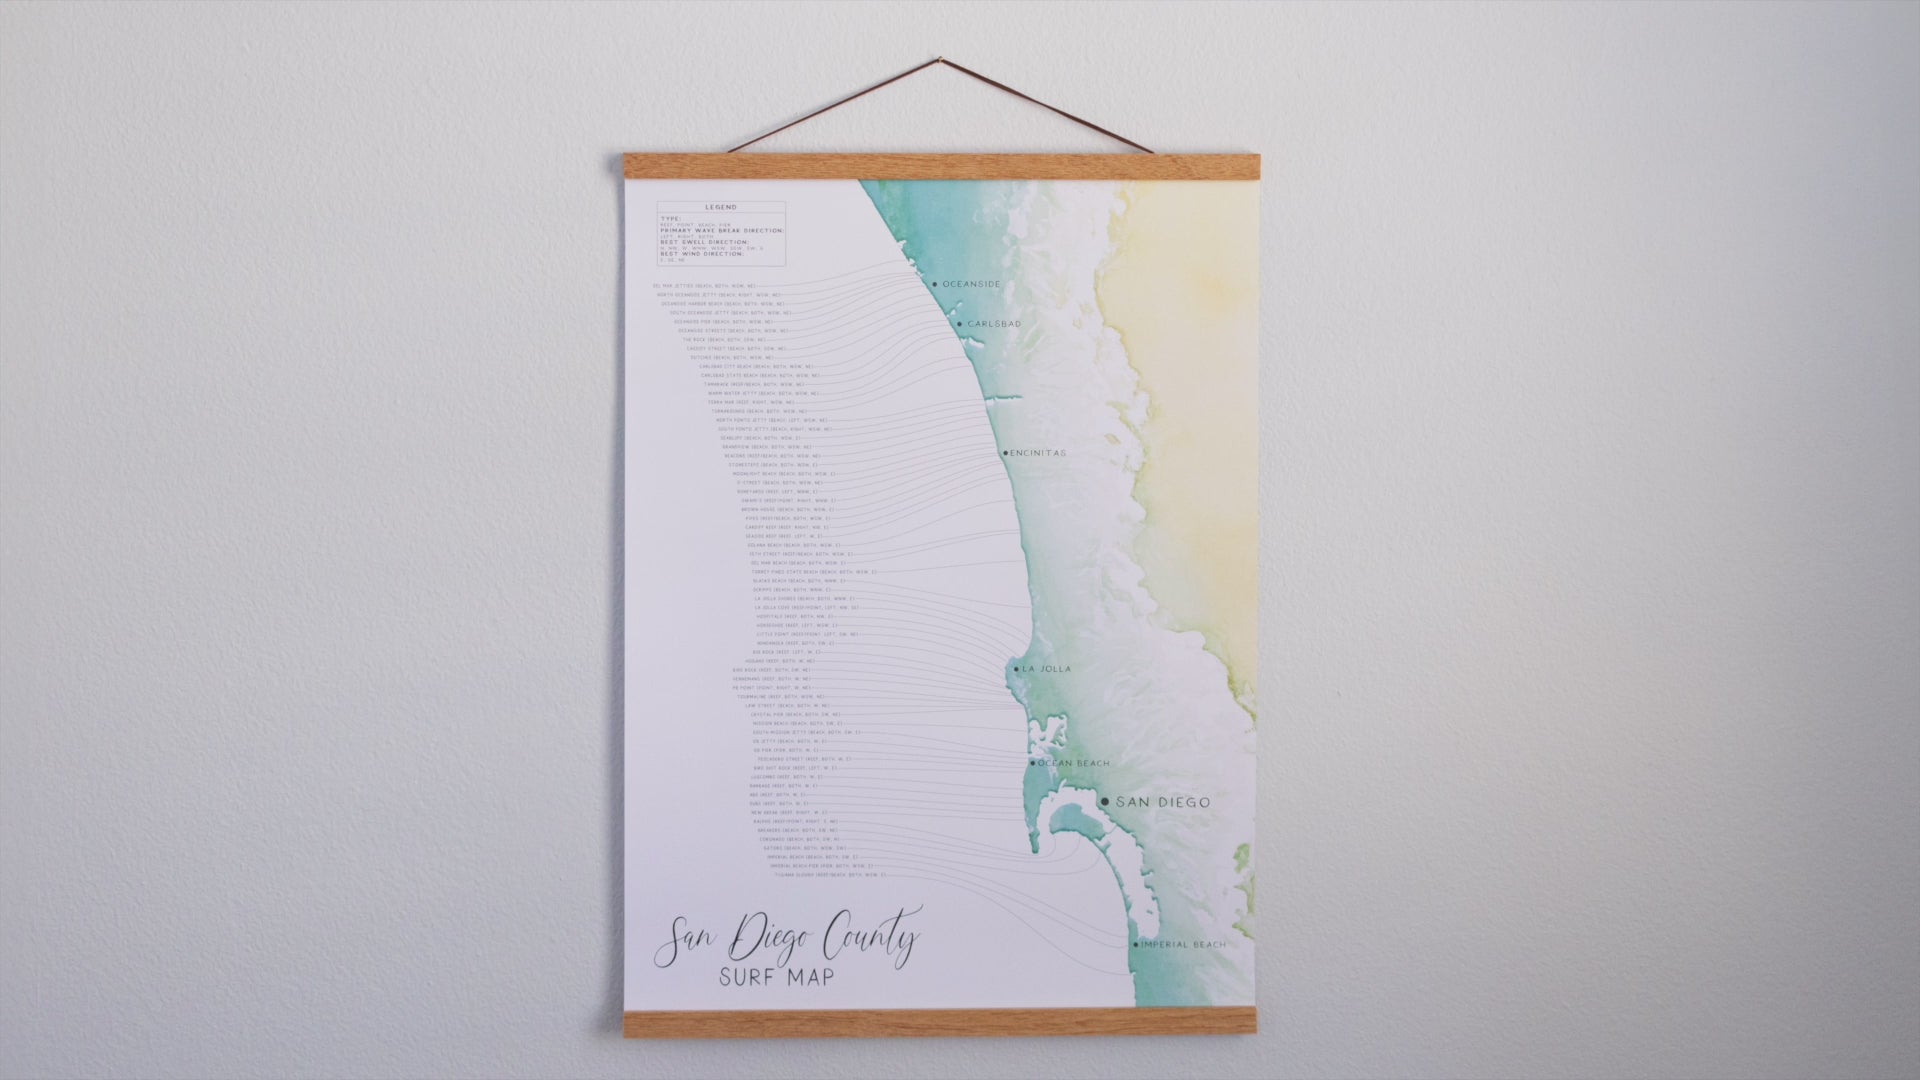 LEGEND
TYPE:
REEF, POINT, BEACH, PIER
PRIMARY WAVE BREAK DIRECTION:
LEFT, RIGHT, BOTH
BEST SWELL DIRECTION:
BEST WIND DIRECTION:
E, SE, NE
DEL MAR JETTIES (BEACH, BOTH, WSW, NE)
NORTH OCEANSIDE JETTY (BEACH, RIGHT, WSW, NE)
OCEANSIDE HARBOR BEACH (BEACH, BOTH, WSW, NE)
SOUTH OCEANSIDE JETTY (BEACH, BOTH, WSW, NE)
OCEANSIDE PIER (BEACH, BOTH, WSW, NE)
OCEANSIDE STREETS (BEACH, BOTH, WSW, NE)
THE ROCK (BEACH, BOTH, SSW, NE)
CASSIDY STREET (BEACH, BOTH, SSW, NE)
CARLSBAD CITY BEACH (BEACH, BOTH, WSW, NE)
CARLSBAD STATE BEACH (BEACH, BOTH, WSW, NE)
TAMARACK (REEF/BEACH, BOTH, WSW, NE)
WARM WATER JETTY (BEACH, BOTH, WSW, NE)
TERRA MAR (REEF, RIGHT, WSW, NE)
TURNAROUNDS (BEACH, BOTH, WSW, NE)
NORTH PONTO JETTY (BEACH, LEFT, WSW, NE)
SOUTH PONTO JETTY (BEACH, RIGHT, WSW, NE)
SEABLUFF (BEACH, BOTH, WSW, E)
GRANDVIEW (BEACH, BOTH, WSW, NE)
BEACONS (REEF/BEACH, BOTH, WSW, NE)
STONESTEPS (BEACH, BOTH, WSW, E)
MOONLIGHT BEACH (BEACH, BOTH, WSW, E)
D STREET (BEACH, BOTH, WSW, NE)
BONEYARDS (REEF, LEFT, WNW, E)
SWAMI'S (REEF/POINT, RIGHT, WNW, E)
BROWN HOUSE (BEACH, BOTH, WSW, E)
PIPES (REEF/BEACH, BOTH, WSW, E)
CARDIFF REEF (REEF, RIGHT, NW, E)
SEASIDE REEF (REEF, LEFT, W, E)
SOLANA BEACH (BEACH, BOTH, WSW, E)
15TH STREET (REEF/BEACH, BOTH, WSW, E)
DEL MAR BEACH (BEACH, BOTH, WSW, E)
TORREY PINES STATE BEACH (BEACH, BOTH, WSW, E)
BLACKS BEACH (BEACH, BOTH, WNW, E)
SCRIPPS (BEACH, BOTH, WNW, E)
LA JOLLA SHORES (BEACH, BOTH, WNW, E)
LA JOLLA COVE (REEF/POINT, LEFT, NW, SE)
HOSPITALS (REEF, BOTH, NW, E)
HORSESHOE (REEF, LEFT, WSW, E)
LITTLE POINT (REEF/POINT, LEFT, SW, NE)
WINDANSEA (REEF, BOTH, SW, E)
BIG ROCK (REEF, LEFT, W, E)
BIRD ROCK (REEF, BOTH, SW, NE)
PB POINT (POINT, RIGHT, W, NE)
TOURMALINE (REEF, BOTH, WSW, NE)
LAW STREET (BEACH, BOTH, W, NE)
CRYSTAL PIER (BEACH, BOTH, SW, NE)
MISSION BEACH (BEACH, BOTH, SW, E)
SOUTH MISSION JETTY (BEACH, BOTH, SW, E)
OB JETTY (BEACH, BOTH, W, E)
OB PIER (PIER, BOTH, W, E)
PESCADERO STREET (REEF, BOTH, W, E)
LUSCOMBS (REEF, BOTH, W, E)
GARBAGE (REEF, BOTH, W, E)
ABS (REEF, BOTH, W, E)
SUBS (REEF, BOTH, W, E)
NEW BREAK (REEF, RIGHT, W, E)
RALPHS (REEF/POINT, RIGHT, S, NE)
BREAKERS (BEACH, BOTH, SW, NE)
CORONADO (BEACH, BOTH, SW, N)
GATORS (BEACH, BOTH, WSW, SW)
IMPERIAL BEACH (BEACH, BOTH, SW, E)
IMPERIAL BEACH PIER (PIER, BOTH, WSW, E)
TIJUANA SLOUGH (REEF/BEACH, BOTH, WSW, E)
OCEANSIDE
CARLSBAD
ENCINITAS
LA JOLLA
OCEAN BEACH
SAN DIEGO
IMPERIAL BEACH
San Diego County
SURF MAP